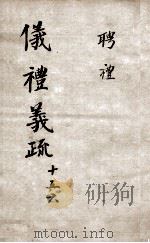 聘禮
儀禮義疏
十五六